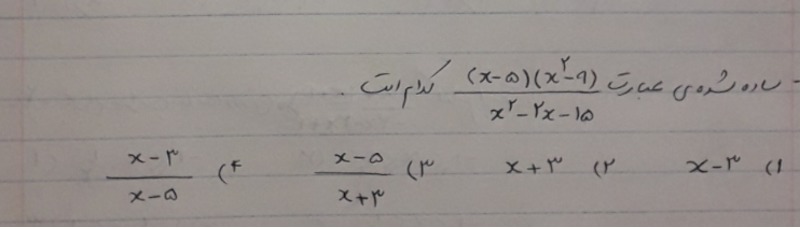 - ساده شده‌ی عبارت (x-۵)(x²-۹) / x²-۲x-۱۵ کدام است.
۱) x-۳ ۲) x+۳ ۳) x-۵ / x+۳ ۴) x-۳ / x-۵